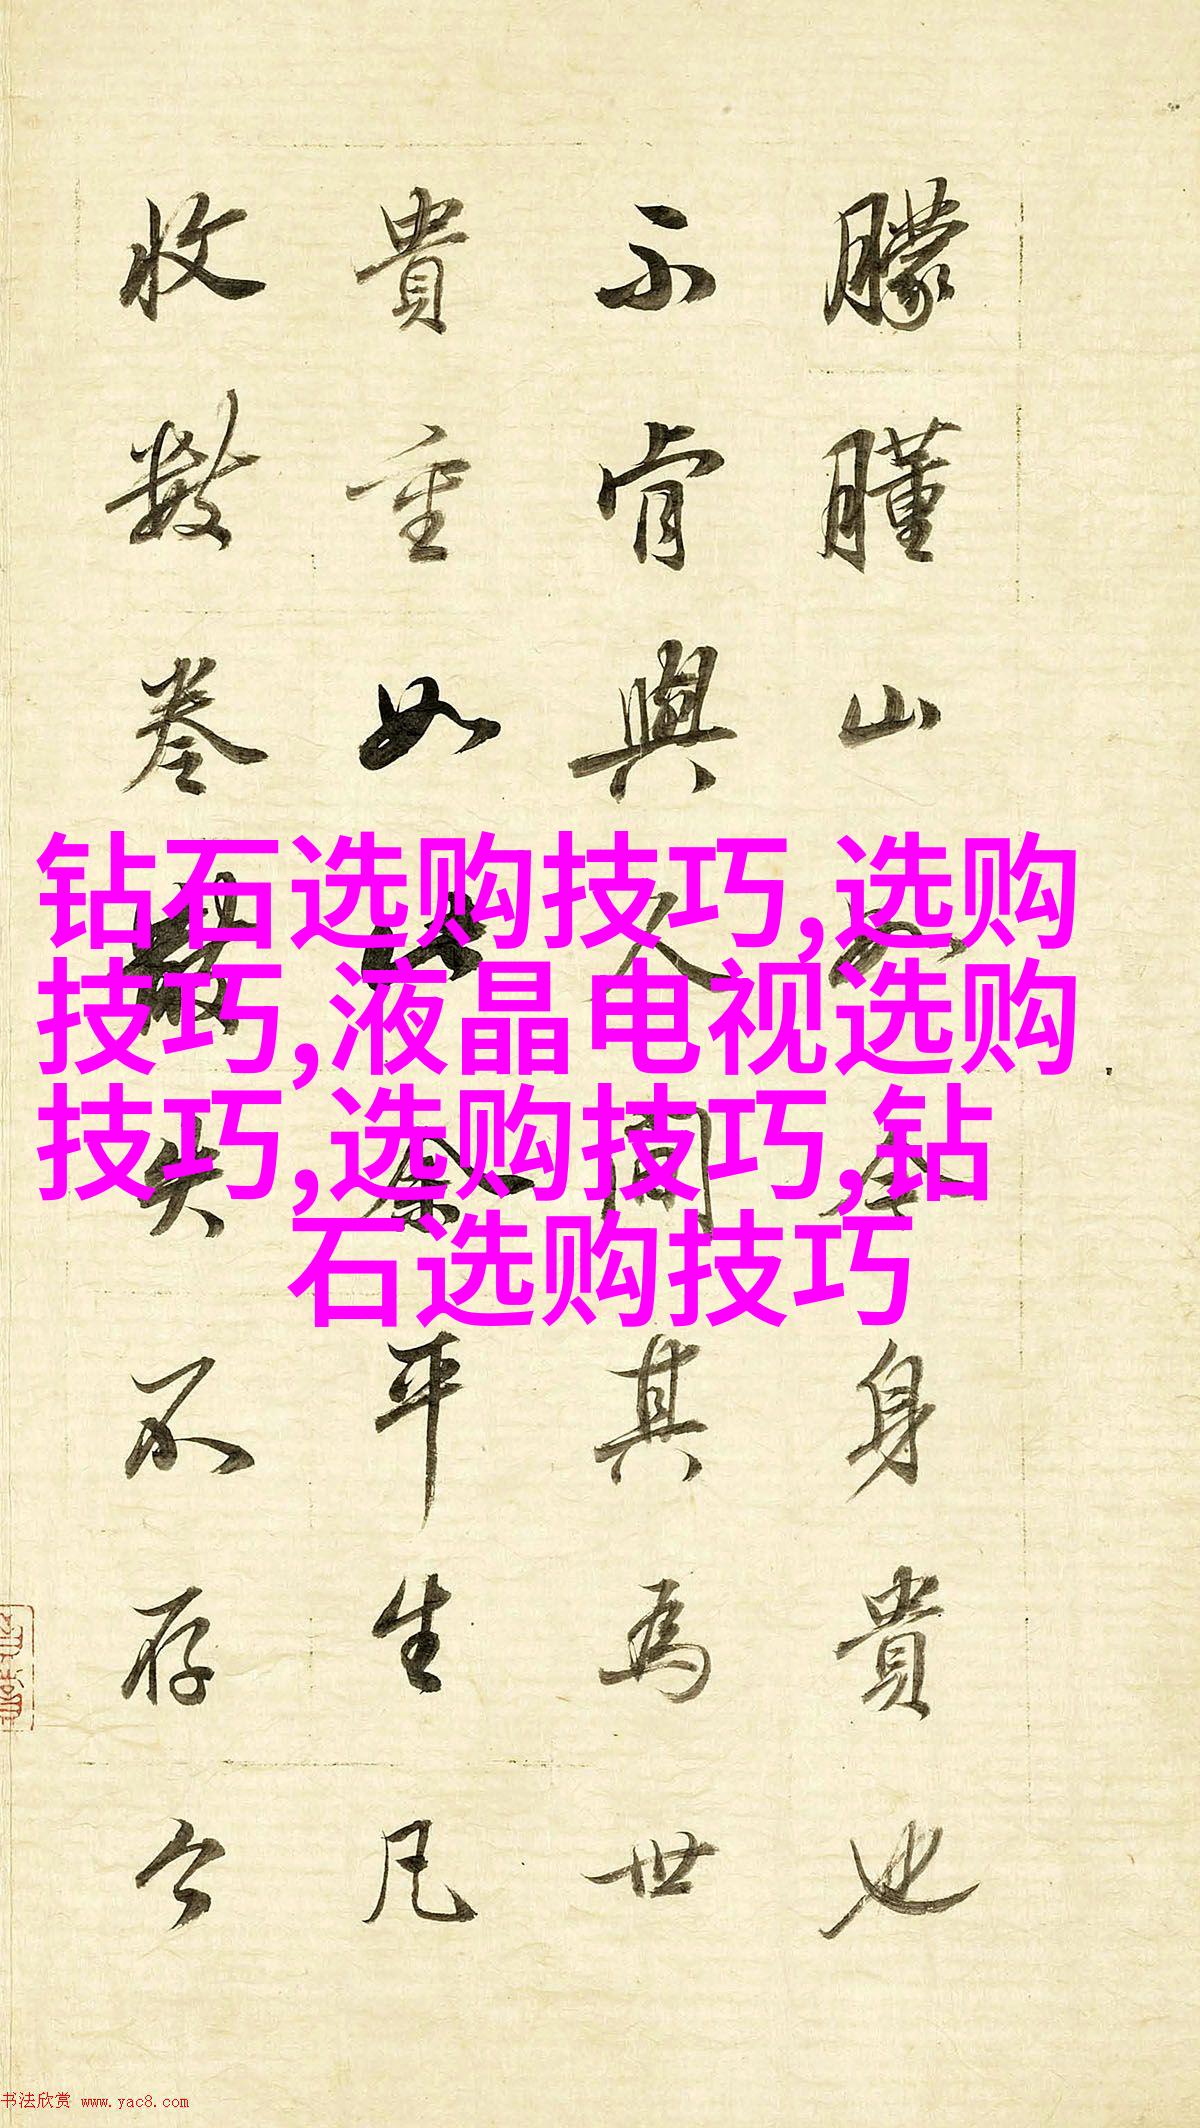 朦朣山身貴也
不肯與人間其為世
貴重如此余平生凡
收數卷失不存今
钻石选购技巧,选购
技巧,液晶电视选购
技巧,选购技巧,钻
石选购技巧
书法欣赏 www.yac8.com